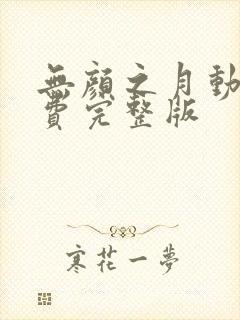 無顏之月動
費完整版
寒花一夢